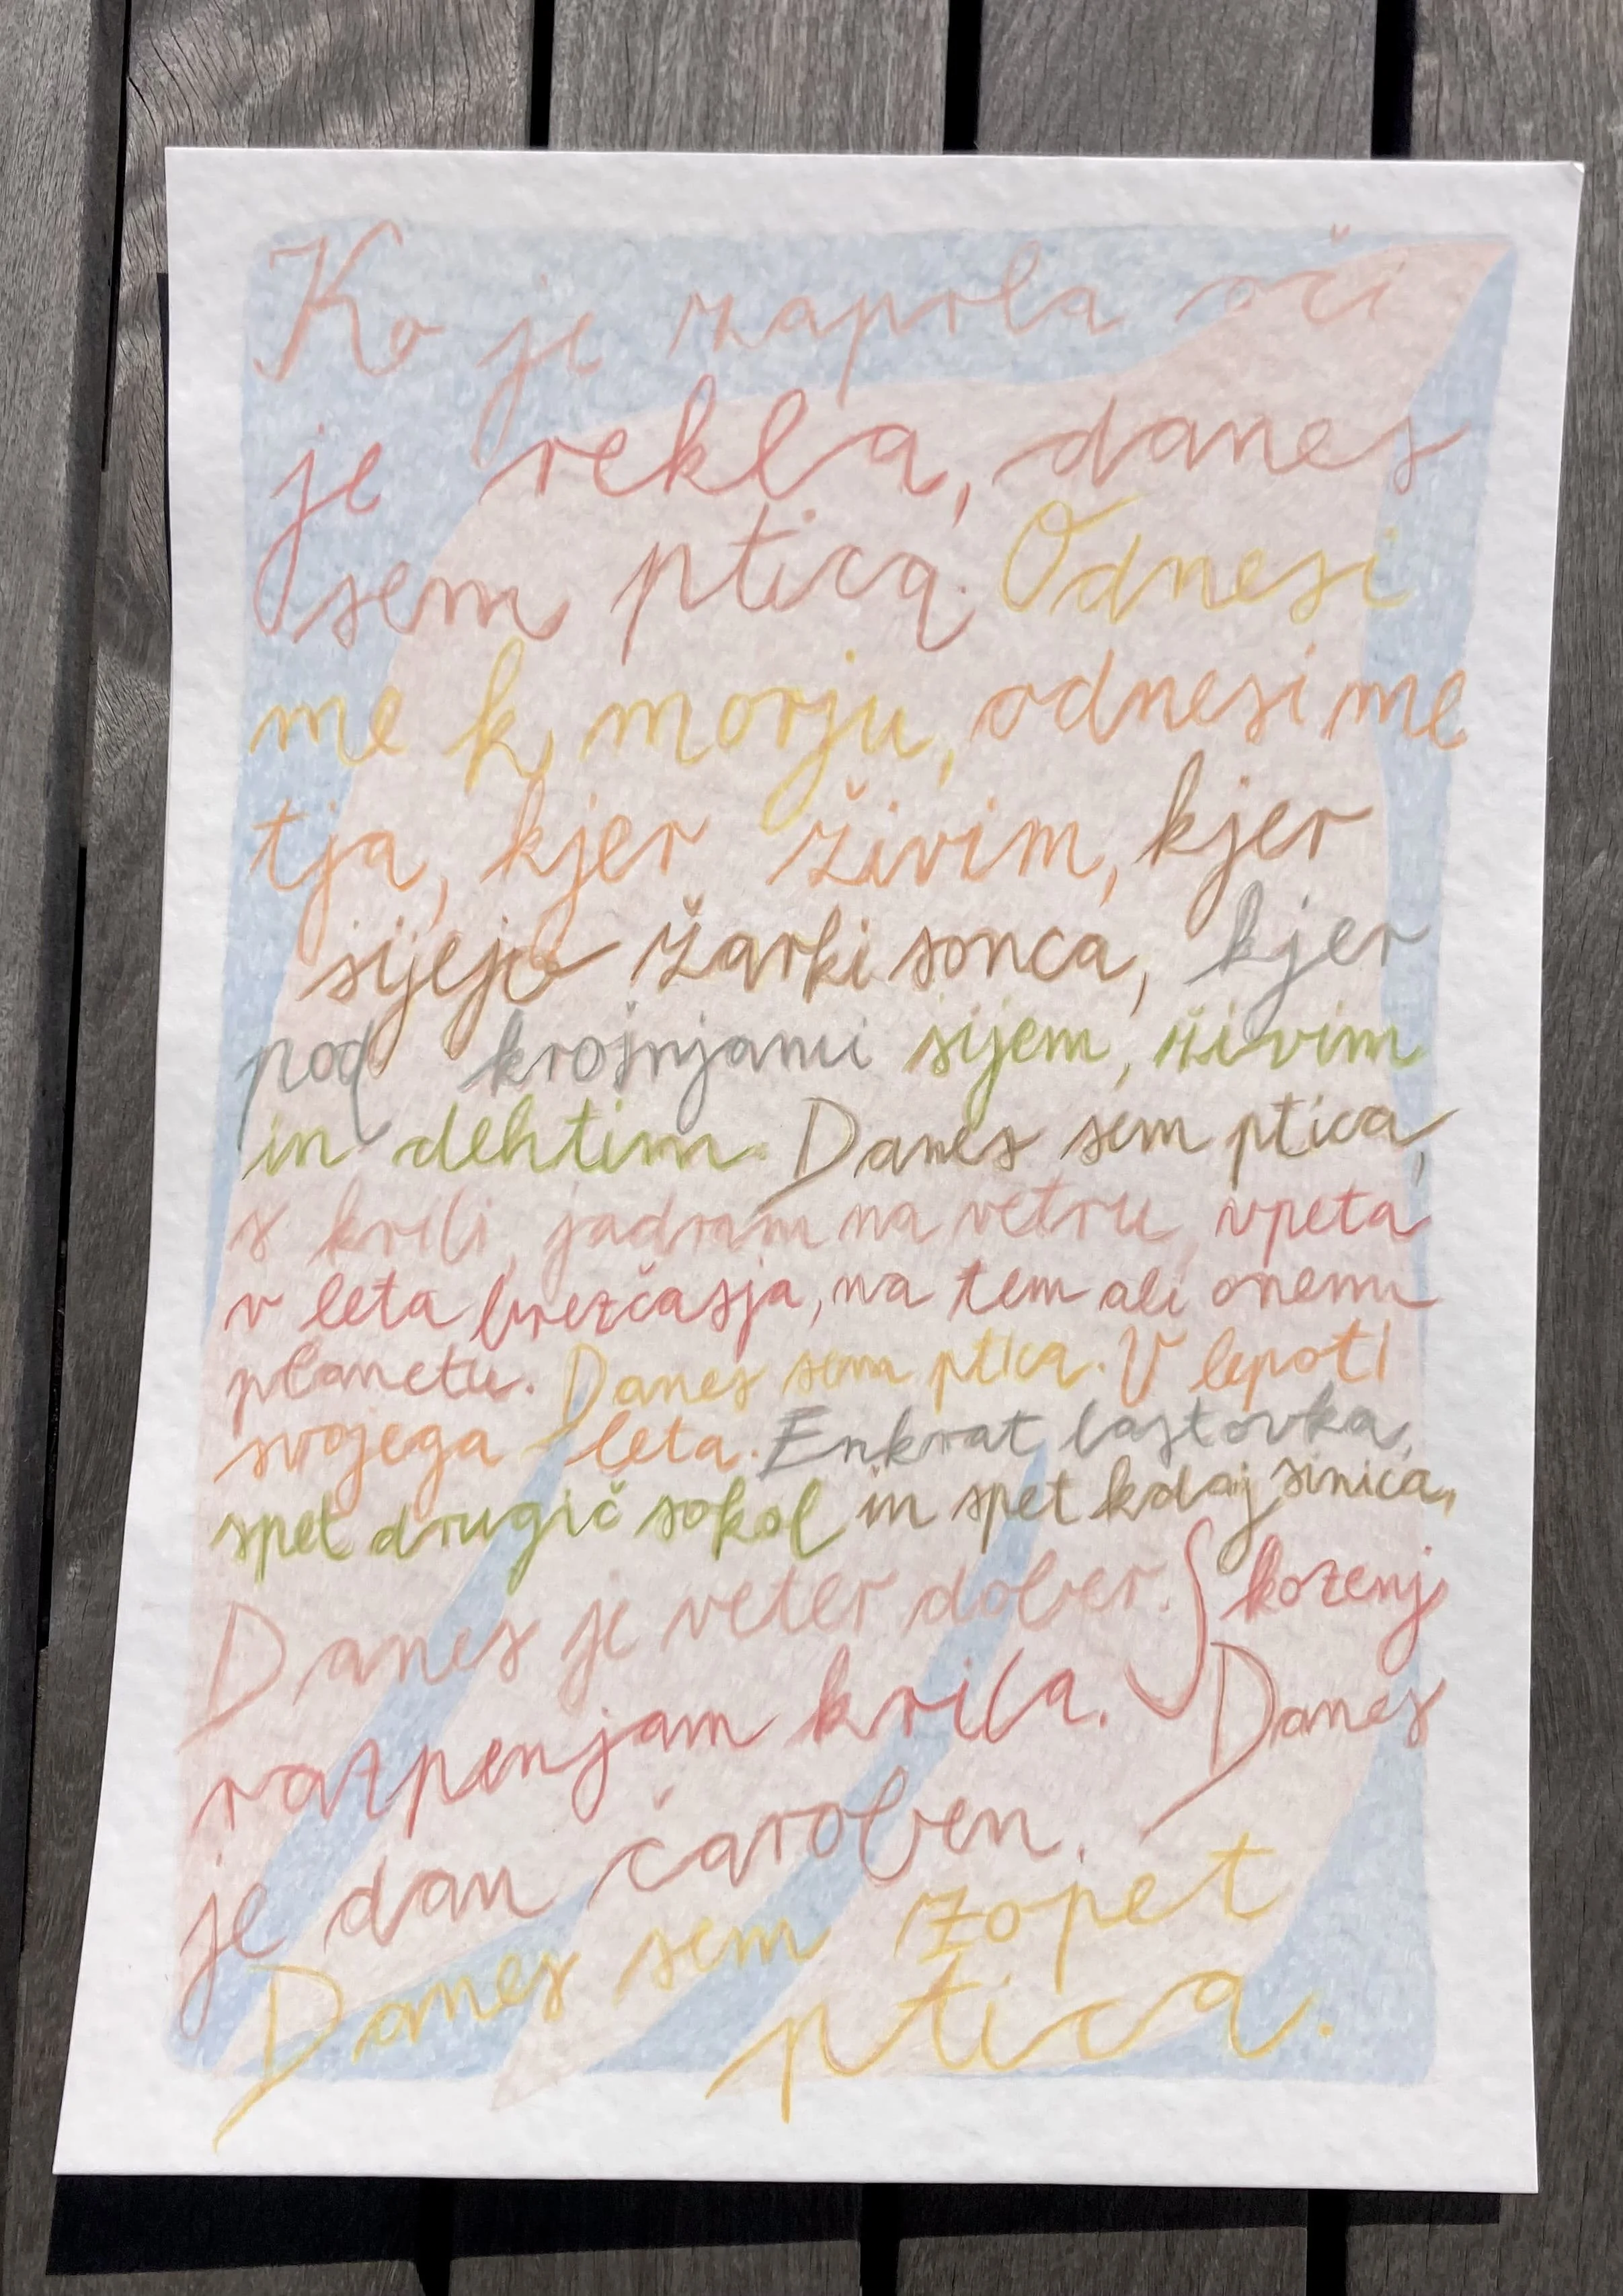 Ko je zaprla oči
je rekla, danes
sem ptica. Odnesi
me k morju, odnesi me
tja, kjer živim, kjer
sijejo žarki sonca, kjer
pod krošnjami sijem, živim
in dehtim. Danes sem ptica,
s krili, jadram na vetru, vpeta
v leta brezčasja, na tem ali onem
planetu. Danes sem ptica. V lepoti
svojega leta. Enkrat lastovka,
spet drugič sokol in spet kdaj sinica.
Danes je veter dober. Skozenj
razpenjam krila. Danes
je dan čaroben.
Danes sem zopet
ptica.